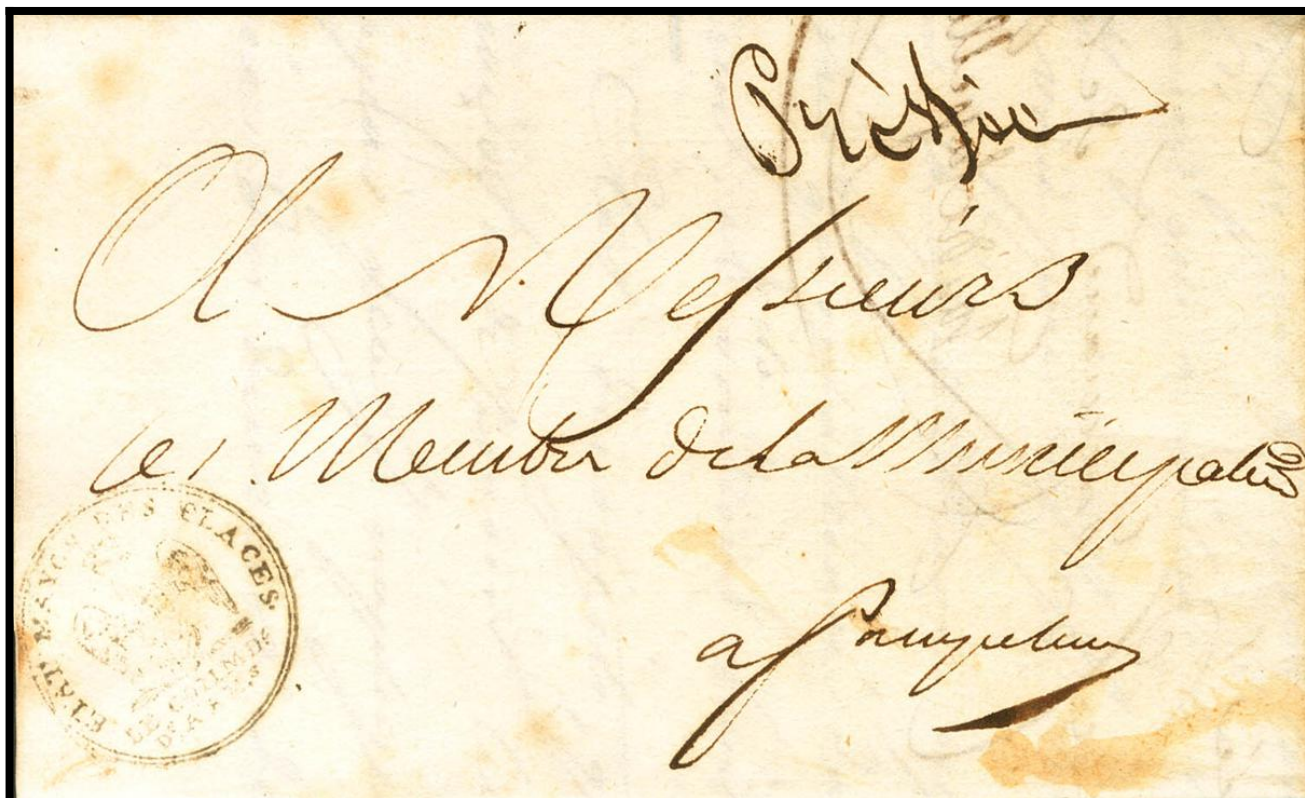 Préssée
A Messieurs
les Membre de la Municipalité
a Pampelune
ETAT MAYOR DES PLACES.
LE COMMD.
D'ARMES